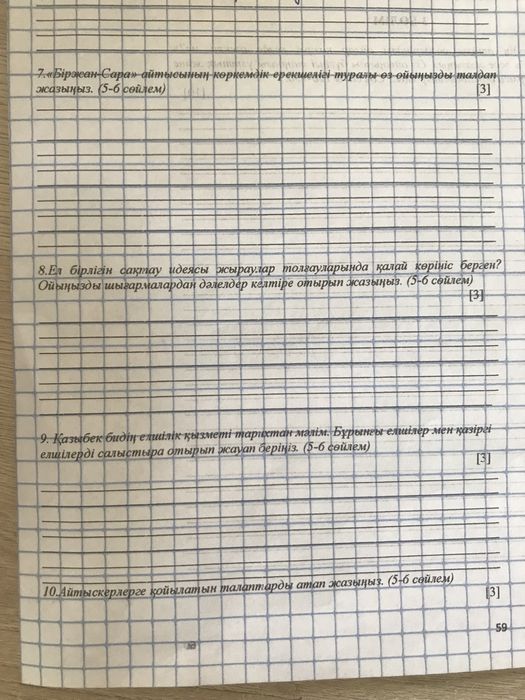 7.«Біржан-Сара» айтысының көркемдік ерекшелігі туралы өз ойыңызды талдап
жазыңыз. (5-6 сөйлем) [3]
8.Ел бірлігін сақтау идеясы жыраулар толғауларында қалай көрініс берген?
Ойыңызды шығармалардан дәлелдер келтіре отырып жазыңыз. (5-6 сөйлем)
[3]
9. Қазыбек бидің елшілік қызметі тарихтан мәлім. Бұрынғы елшілер мен қазіргі
елшілерді салыстыра отырып жауап беріңіз. (5-6 сөйлем)
[3]
10.Айтыскерлерге қойылатын талаптарды атап жазыңыз. (5-6 сөйлем)
[3]
59